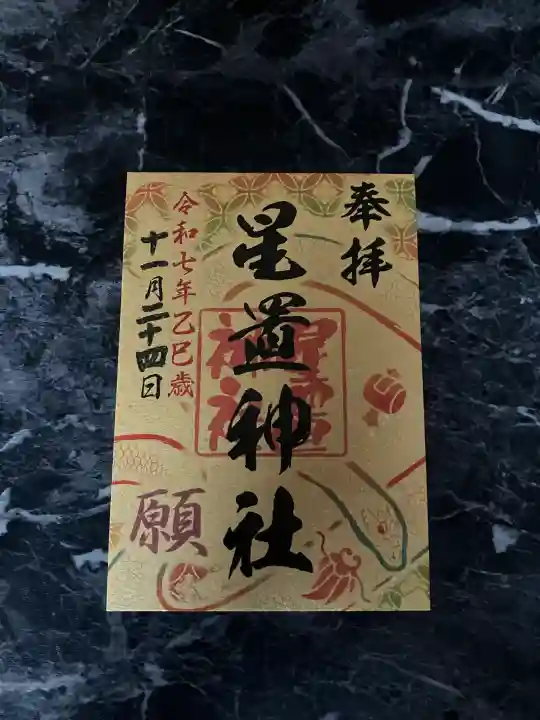 奉拝
星置神社
令和七年乙巳歳
十一月二十四日
願